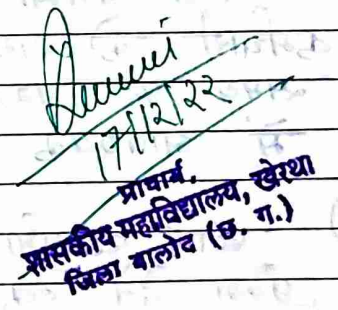 17/12/22
प्राचार्य,
शासकीय महाविद्यालय, खेरथा
जिला बालोद (छ. ग.)